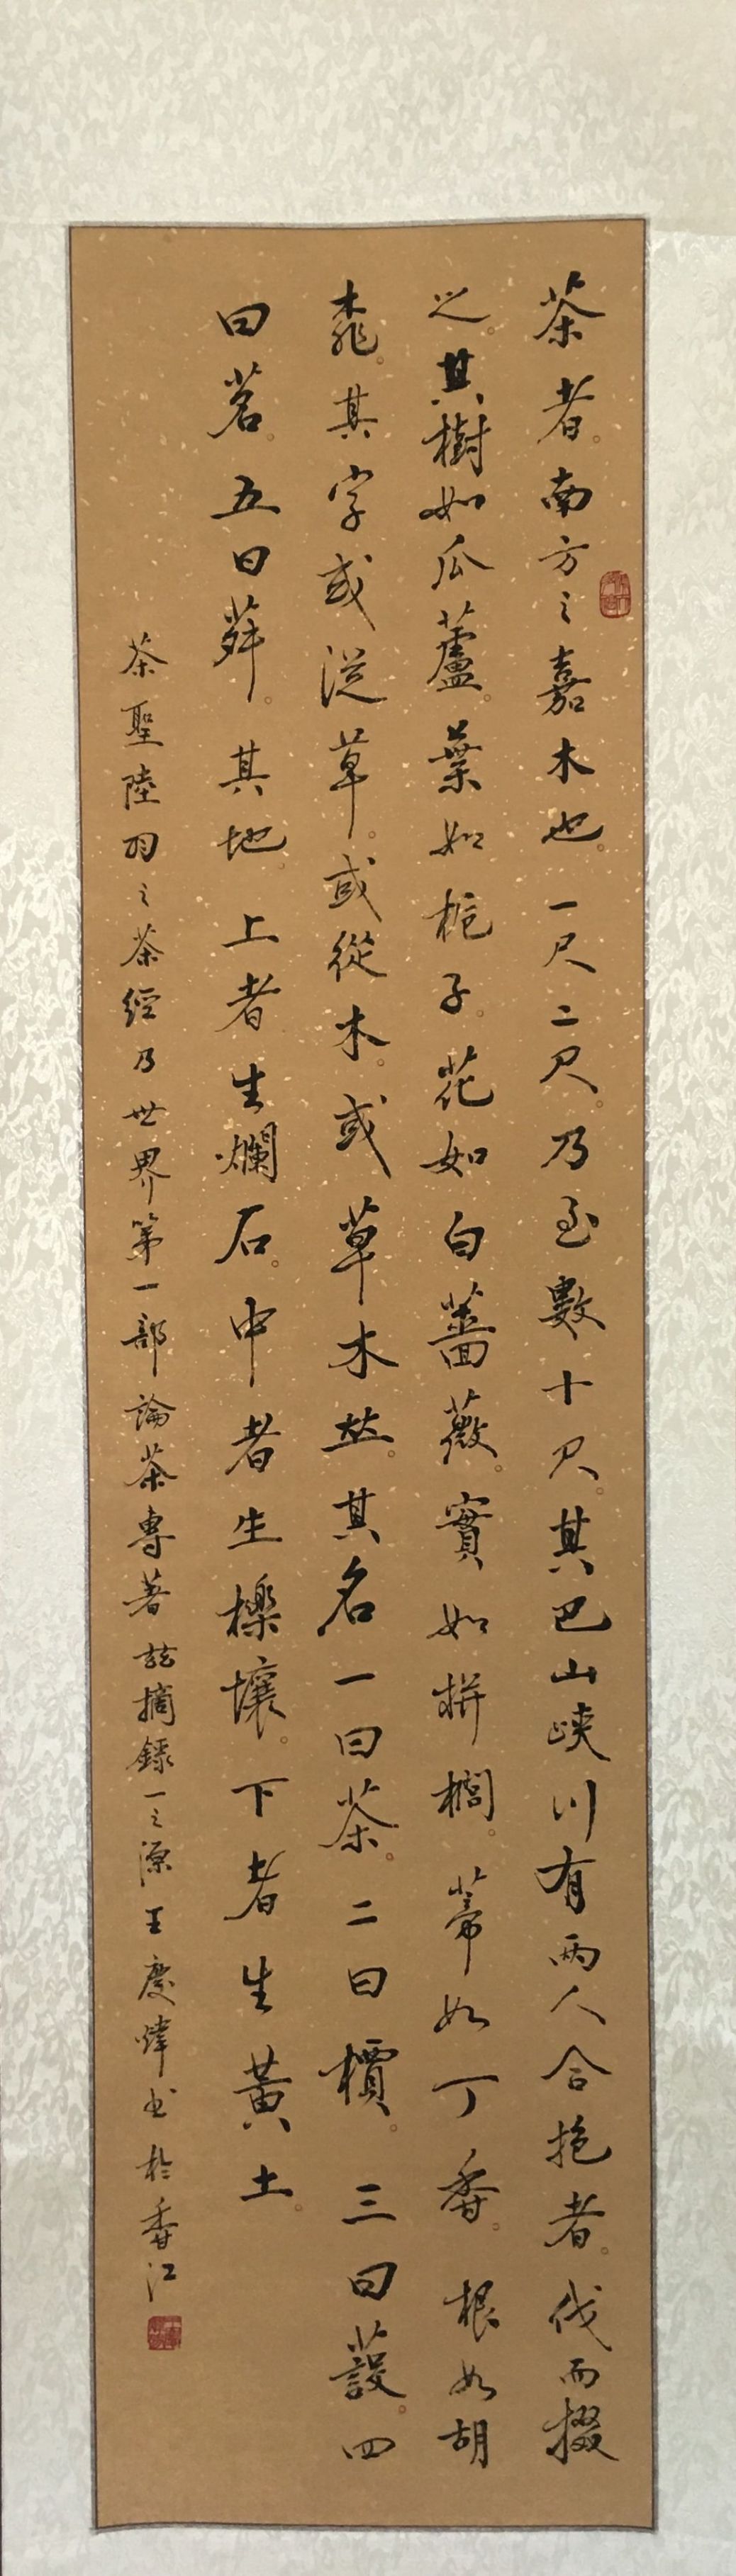 茶者。南方之嘉木也。一尺二尺。乃至數十尺。其巴山峽川有兩人合抱者。伐而掇
之。其樹如瓜蘆。葉如梔子。花如白薔薇。實如栟櫚。蒂如丁香。根如胡
桃。其字或從草。或從木。或草木並。其名一曰茶。二曰檟。三曰蔎。四
曰茗。五曰荈。其地。上者生爛石。中者生櫟壤。下者生黃土。
茶聖陸羽之茶經乃世界第一部論茶專著茲摘錄一之源王慶煒书於香江